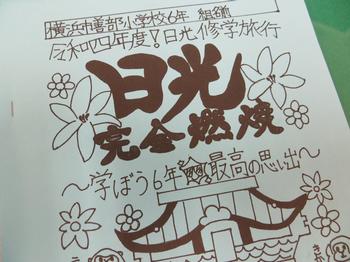 横浜市善部小学校6年 組
令和四年度!日光修学旅行
日光
完全燃焼
〜学ぼう6年 最高の思い出〜